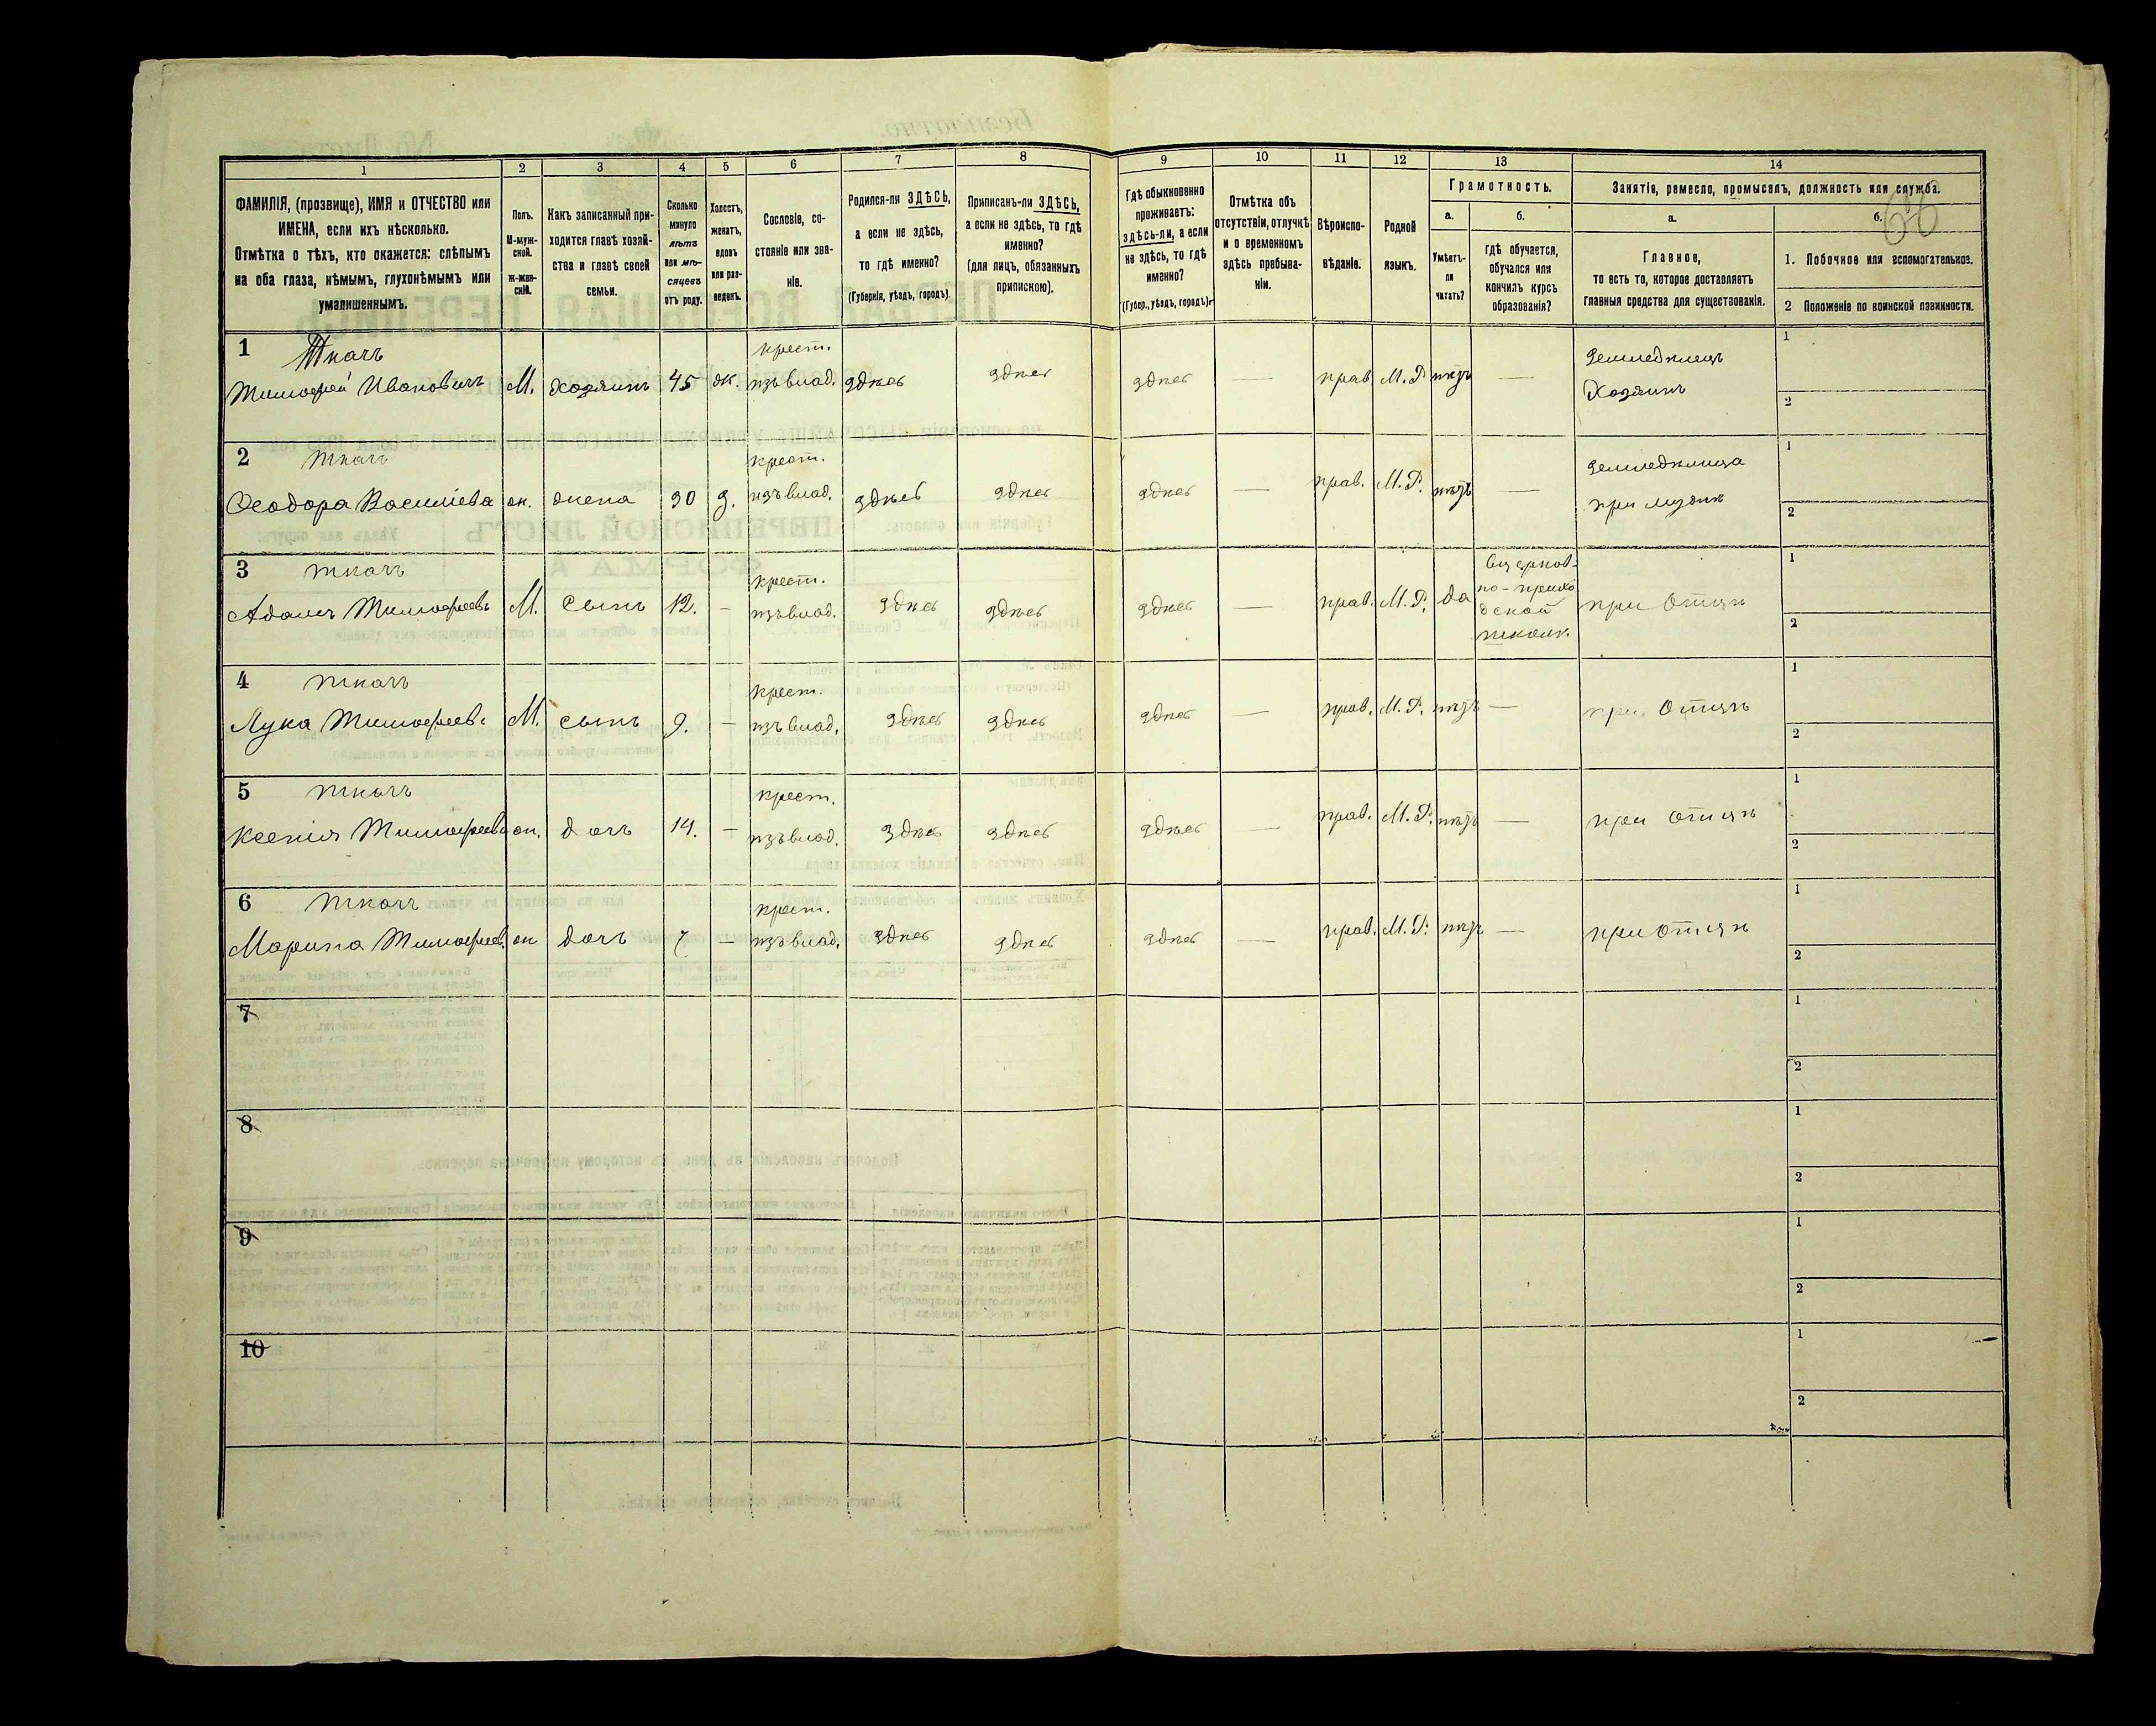 68
1 2 3 4 5 6 7 8 9 10 11 12 13 14
ФАМИЛІЯ, (прозвище), ИМЯ и ОТЧЕСТВО или
ИМЕНА, если ихъ нѣсколько.
Отмѣтка о тѣхъ, кто окажется: слѣпымъ
на оба глаза, нѣмымъ, глухонѣмымъ или
умалишеннымъ.
Полъ.
М-муж-
ской.
ж-жен-
скій.
Какъ записанный при-
ходится главѣ хозяй-
ства и главѣ своей
семьи.
Сколько
минуло
лѣтъ
или мѣ-
сяцевъ
отъ роду.
Холостъ,
женатъ,
вдовъ
или раз-
веденъ.
Сословіе, со-
стояніе или зва-
ніе.
Родился-ли ЗДѢСЬ,
а если не здѣсь,
то гдѣ именно?
(Губернія, уѣздъ, городъ)
Приписанъ-ли ЗДѢСЬ,
а если не здѣсь, то гдѣ
именно?
(для лицъ, обязанныхъ
припискою).
Гдѣ обыкновенно
проживаетъ:
здѣсь-ли, а если
не здѣсь, то гдѣ
именно?
(Губер., уѣздъ, городъ).
Отмѣтка объ
отсутствіи, отлучкѣ
и о временномъ
здѣсь пребыва-
ніи.
Вѣроиспо-
вѣданіе.
Родной
языкъ.
Грамотность.
а.
Умѣетъ-
ли
читать?
б.
гдѣ обучается,
обучался или
кончилъ курсъ
образованія?
Занятіе, ремесло, промыселъ, должность или служба.
а.
Главное,
то есть то, которое доставляетъ
главныя средства для существованія.
б.
1. Побочное или вспомогательное.
2 Положеніе по воинской повинности.
1 Ткачъ крест. земледѣлецъ 1
Тимофей Ивановичъ М. хозяинъ 45 ж. изъ влад. здѣсь здѣсь здѣсь — прав М.Р. нѣтъ — Хозяинъ 2
2 ткачъ крест. земледѣлица 1
Ѳеодора Василіева ж. жена 30 з. изъ влад. здѣсь здѣсь здѣсь — прав. М.Р. нѣтъ — при мужѣ 2
3 ткачъ крест. въ церков- 1
но-прихо
Адамъ Тимофеевъ М. сынъ 12. — изъ влад. здѣсь здѣсь здѣсь — прав. М.Р. да дской при отцѣ 2
школѣ
4 ткачъ крест. 1
Лука Тимофеевъ М. сынъ 9. — изъ влад. здѣсь здѣсь здѣсь — прав. М.Р. нѣтъ — при отцѣ 2
5 ткачъ крест. 1
Ксенія Тимофеева ж. дочъ 14. — изъ влад. здѣсь здѣсь здѣсь — прав. М.Р. нѣтъ — при отцѣ 2
6 ткачъ крест. 1
Марина Тимофеев. ж дочъ 7 — изъ влад. здѣсь здѣсь здѣсь — прав. М.Р. нѣтъ — при отцѣ 2
7 1
2
8 1
2
9 1
2
10 1
2